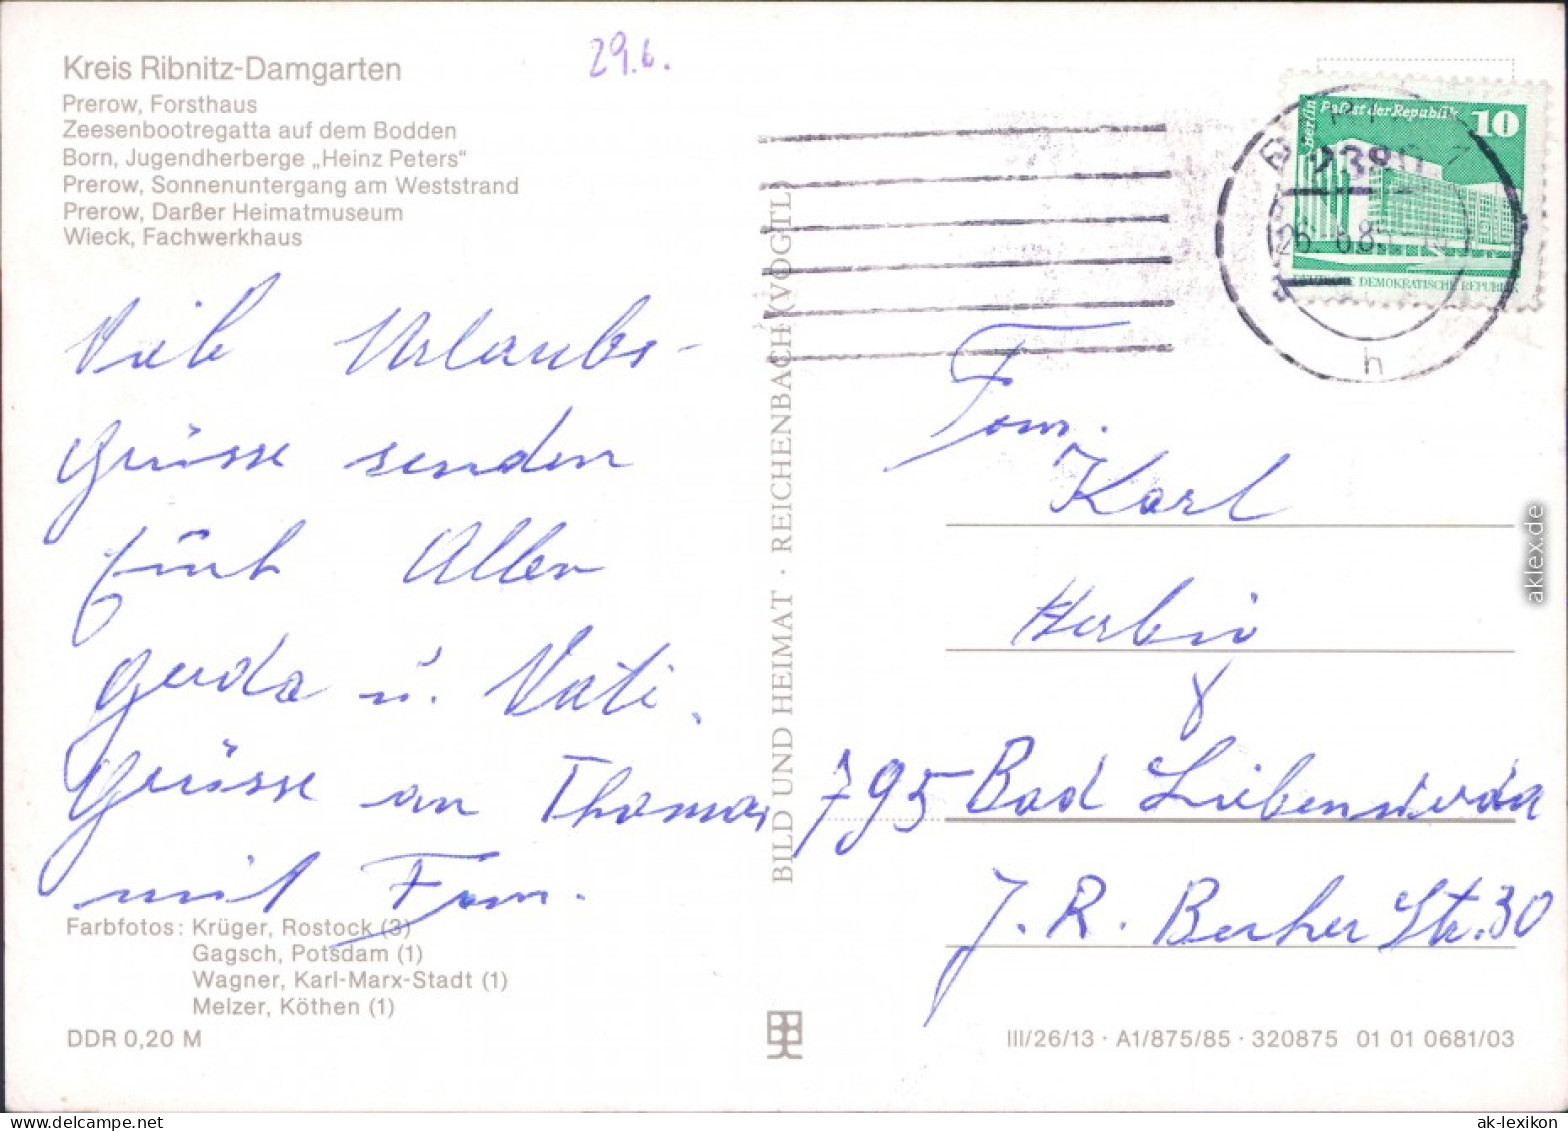 Kreis Ribnitz-Damgarten
Prerow, Forsthaus
Zeesenbootregatta auf dem Bodden
Born, Jugendherberge „Heinz Peters"
Prerow, Sonnenuntergang am Weststrand
Prerow, Darßer Heimatmuseum
Wieck, Fachwerkhaus
29.6.
Viele Urlaubs-
grüsse senden
Euch Allen
Gerda u. Vati.
Grüsse an Thomas
mit Fam.
Farbfotos: Krüger, Rostock (3)
Gagsch, Potsdam (1)
Wagner, Karl-Marx-Stadt (1)
Melzer, Köthen (1)
DDR 0,20 M
BILD UND HEIMAT · REICHENBACH (VOGTL)
Berlin Palast der Republik 10
2380
26. 6.85
DEMOKRATISCHE REPUBLIK
h
Fam.
Karl
Herbig
8
795 Bad Liebenwerda
J. R. Becher Str. 30
III/26/13 · A1/875/85 · 320875 01 01 0681/03
aklex.de
ak-lexikon